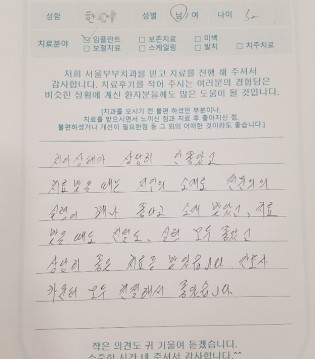 성함 성별 남 / 여 나이
치료분야 ☑ 임플란트 □ 보존치료 □ 미백
□ 보철치료 □ 스케일링 □ 발치 □ 치주치료
저희 서울부부치과를 믿고 치료를 진행 해 주셔서
감사합니다. 치료후기를 적어 주시는 여러분의 경험담은
비슷한 상황에 계신 환자분들께도 많은 도움이 될 것입니다.
[치과를 오시기 전 불편 하셨던 부분이나,
치료를 받으시면서 느끼신 점과 치료 후 좋아지신 점,
불편하셨거나 개선이 필요한점 등 그 외의 어떠한 것이라도 좋습니다.]
치아상태가 상당히 안좋았고
치료 받을 때는 지인의 소개로 원장님의
실력이 좋다고 소개 받았고, 치료
받을 때도 친절도, 실력 모두 좋았고
상당히 좋은 치료를 받았습니다. 간호사
카운터 모두 친절해서 좋았습니다.
작은 의견도 귀 기울여 듣겠습니다.
소중한 시간 내 주셔서 감사합니다.^^